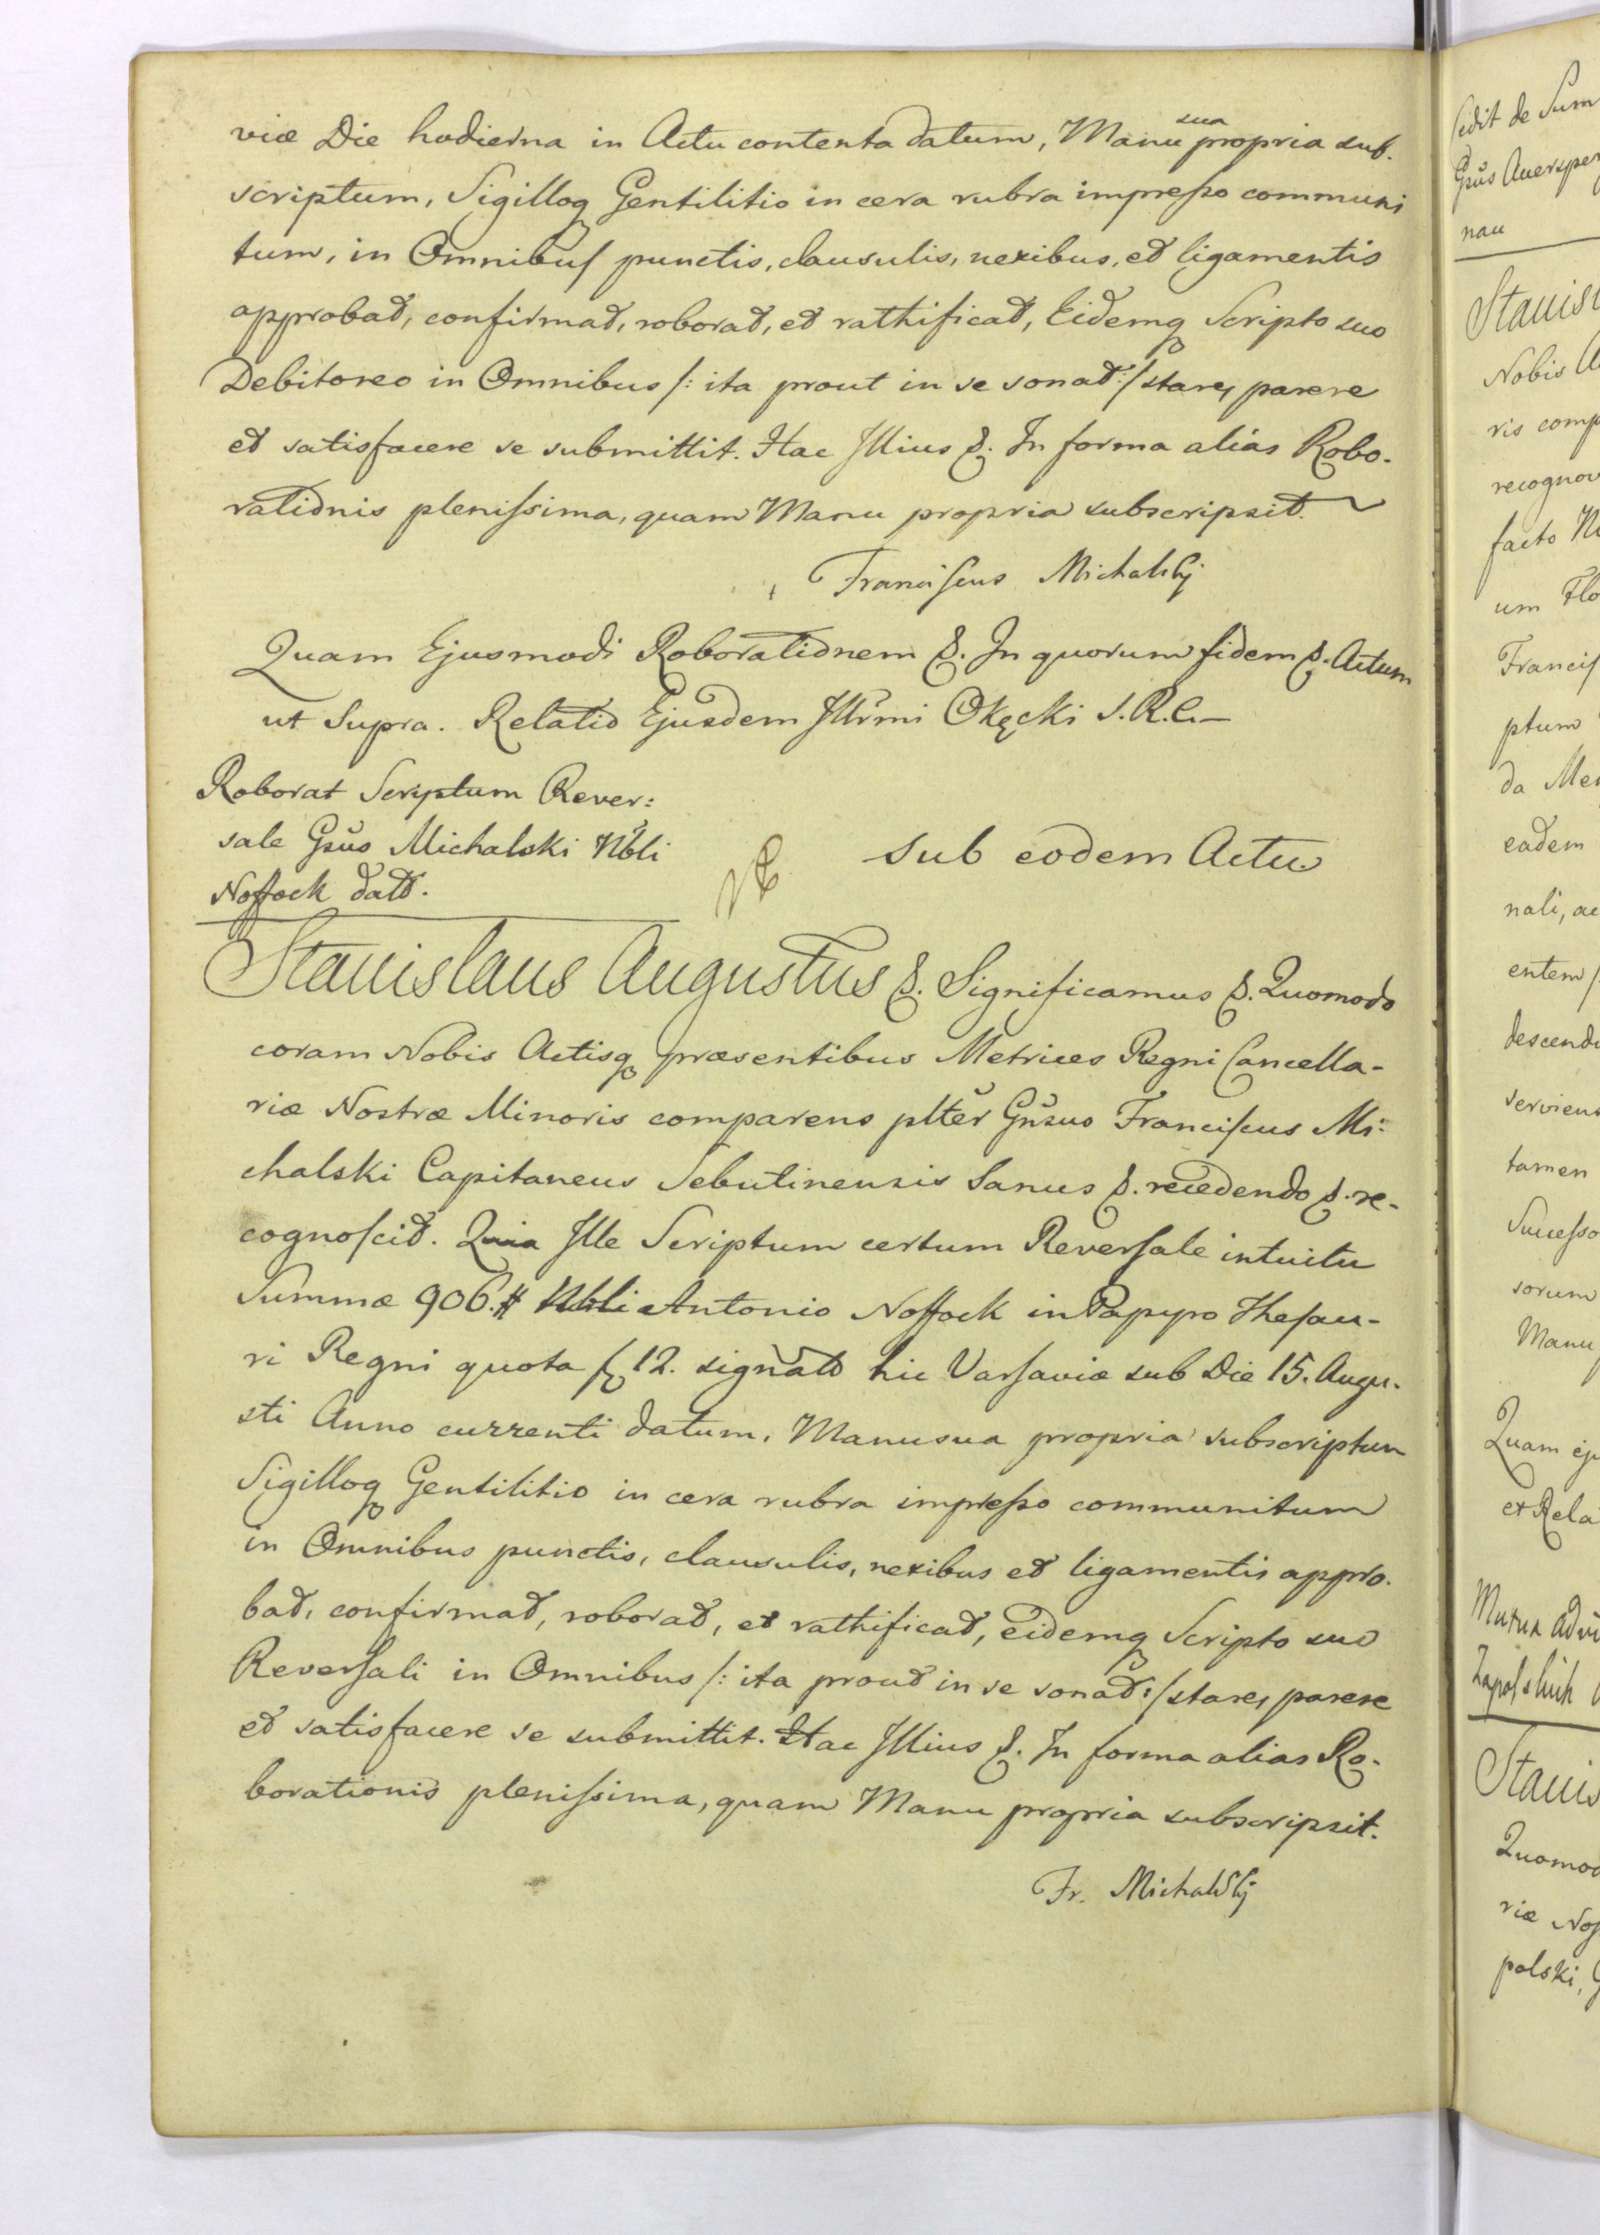 viæ Die hodierna in Actu contenta datum, Manu sua propria sub-
scriptum, Sigilloq Gentilitio in cera rubra impresso communi
tum, in Omnibus punctis, clausulis, nexibus, et ligamentis
approbat, confirmat, roborat, et rathificat, Eidemq Scripto suo
Debitoreo in Omnibus /: ita prout in se sonat :/ stare, parere
et satisfacere se submittit. Hac Illius &. In forma alias Robo-
rationis plenissima, quam Manu propria subscripsit.
Franciscus Michalskj
Quam Ejusmodi Roborationem &. In quorum fidem &. Actum
ut Supra. Relatio Ejusdem Illr̃mi Okęcki S.R.C.
Roborat Scriptum Rever:
sale Gsũs Michalski Nb̃li
Noffock dat̃.
sub eodem Actu
Stanislaus Augustus &. Significamus &. Quomodo
coram Nobis Actisq præsentibus Metrices Regni Cancella-
riæ Nostræ Minoris comparens pltẽr Gñsus Franciscus Mi-
chalski Capitaneus Sebutinensis Sanus &. recedendo &. re-
cognoscit. Quia Ille Scriptum certum Reversale intuitu
Summæ 906.# Nbli Antonio Noffock in Papyro Thesau-
ri Regni quota f 12. signato hic Varsaviæ sub Die 15. Augu-
sti Anno currenti datum, Manu sua propria subscriptum
Sigilloq Gentilitio in cera rubra impresso communitum
in Omnibus punctis, clausulis, nexibus et ligamentis appro-
bat, confirmat, roborat, et rathificat, eidemq Scripto suo
Reversali in Omnibus /: ita prout in se sonat :/ stare, parere
et satisfacere se submittit. Hac Illius &. In forma alias Ro-
borationis plenissima, quam Manu propria subscripsit.
Fr. Michalskj
cedit de Sum
Gsũs Auersper
nau
Stanisl
Nobis A
ris comp
recognov
facto N
um Flo
Francis
ptum
da Me
eadem
nali, ac
entem /
descend
serviens
tamen
Successo
sorum
Manu
Quam ej
et Rela
Stanis
Quomod
riæ Nos
polski, G